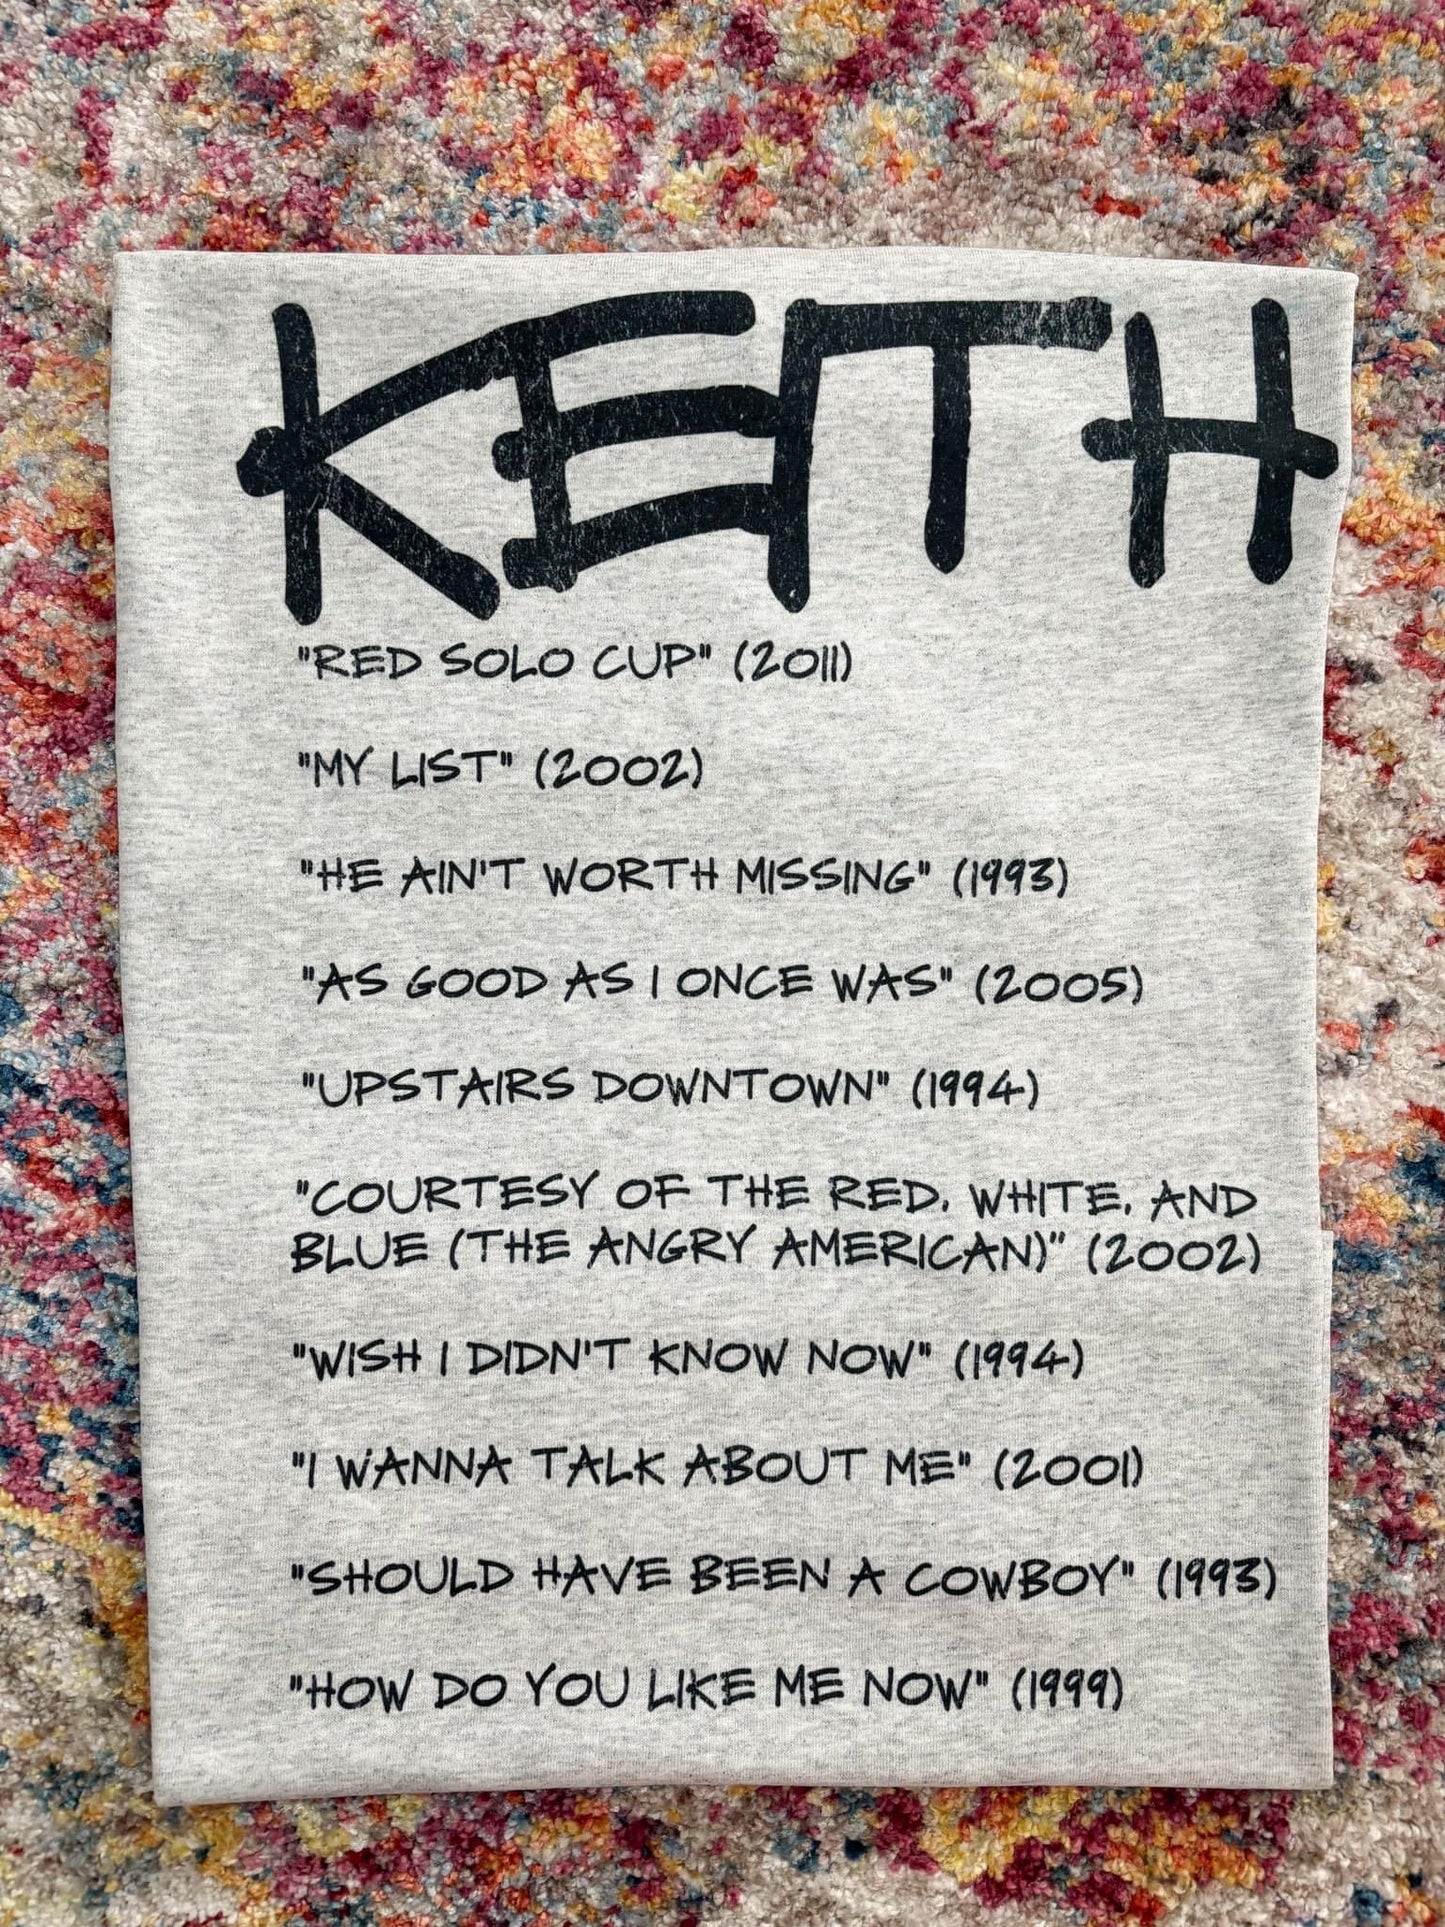 KEITH
"RED SOLO CUP" (2011)
"MY LIST" (2002)
"HE AIN'T WORTH MISSING" (1993)
"AS GOOD AS I ONCE WAS" (2005)
"UPSTAIRS DOWNTOWN" (1994)
"COURTESY OF THE RED, WHITE, AND
BLUE (THE ANGRY AMERICAN)" (2002)
"WISH I DIDN'T KNOW NOW" (1994)
"I WANNA TALK ABOUT ME" (2001)
"SHOULD HAVE BEEN A COWBOY" (1993)
"HOW DO YOU LIKE ME NOW" (1999)